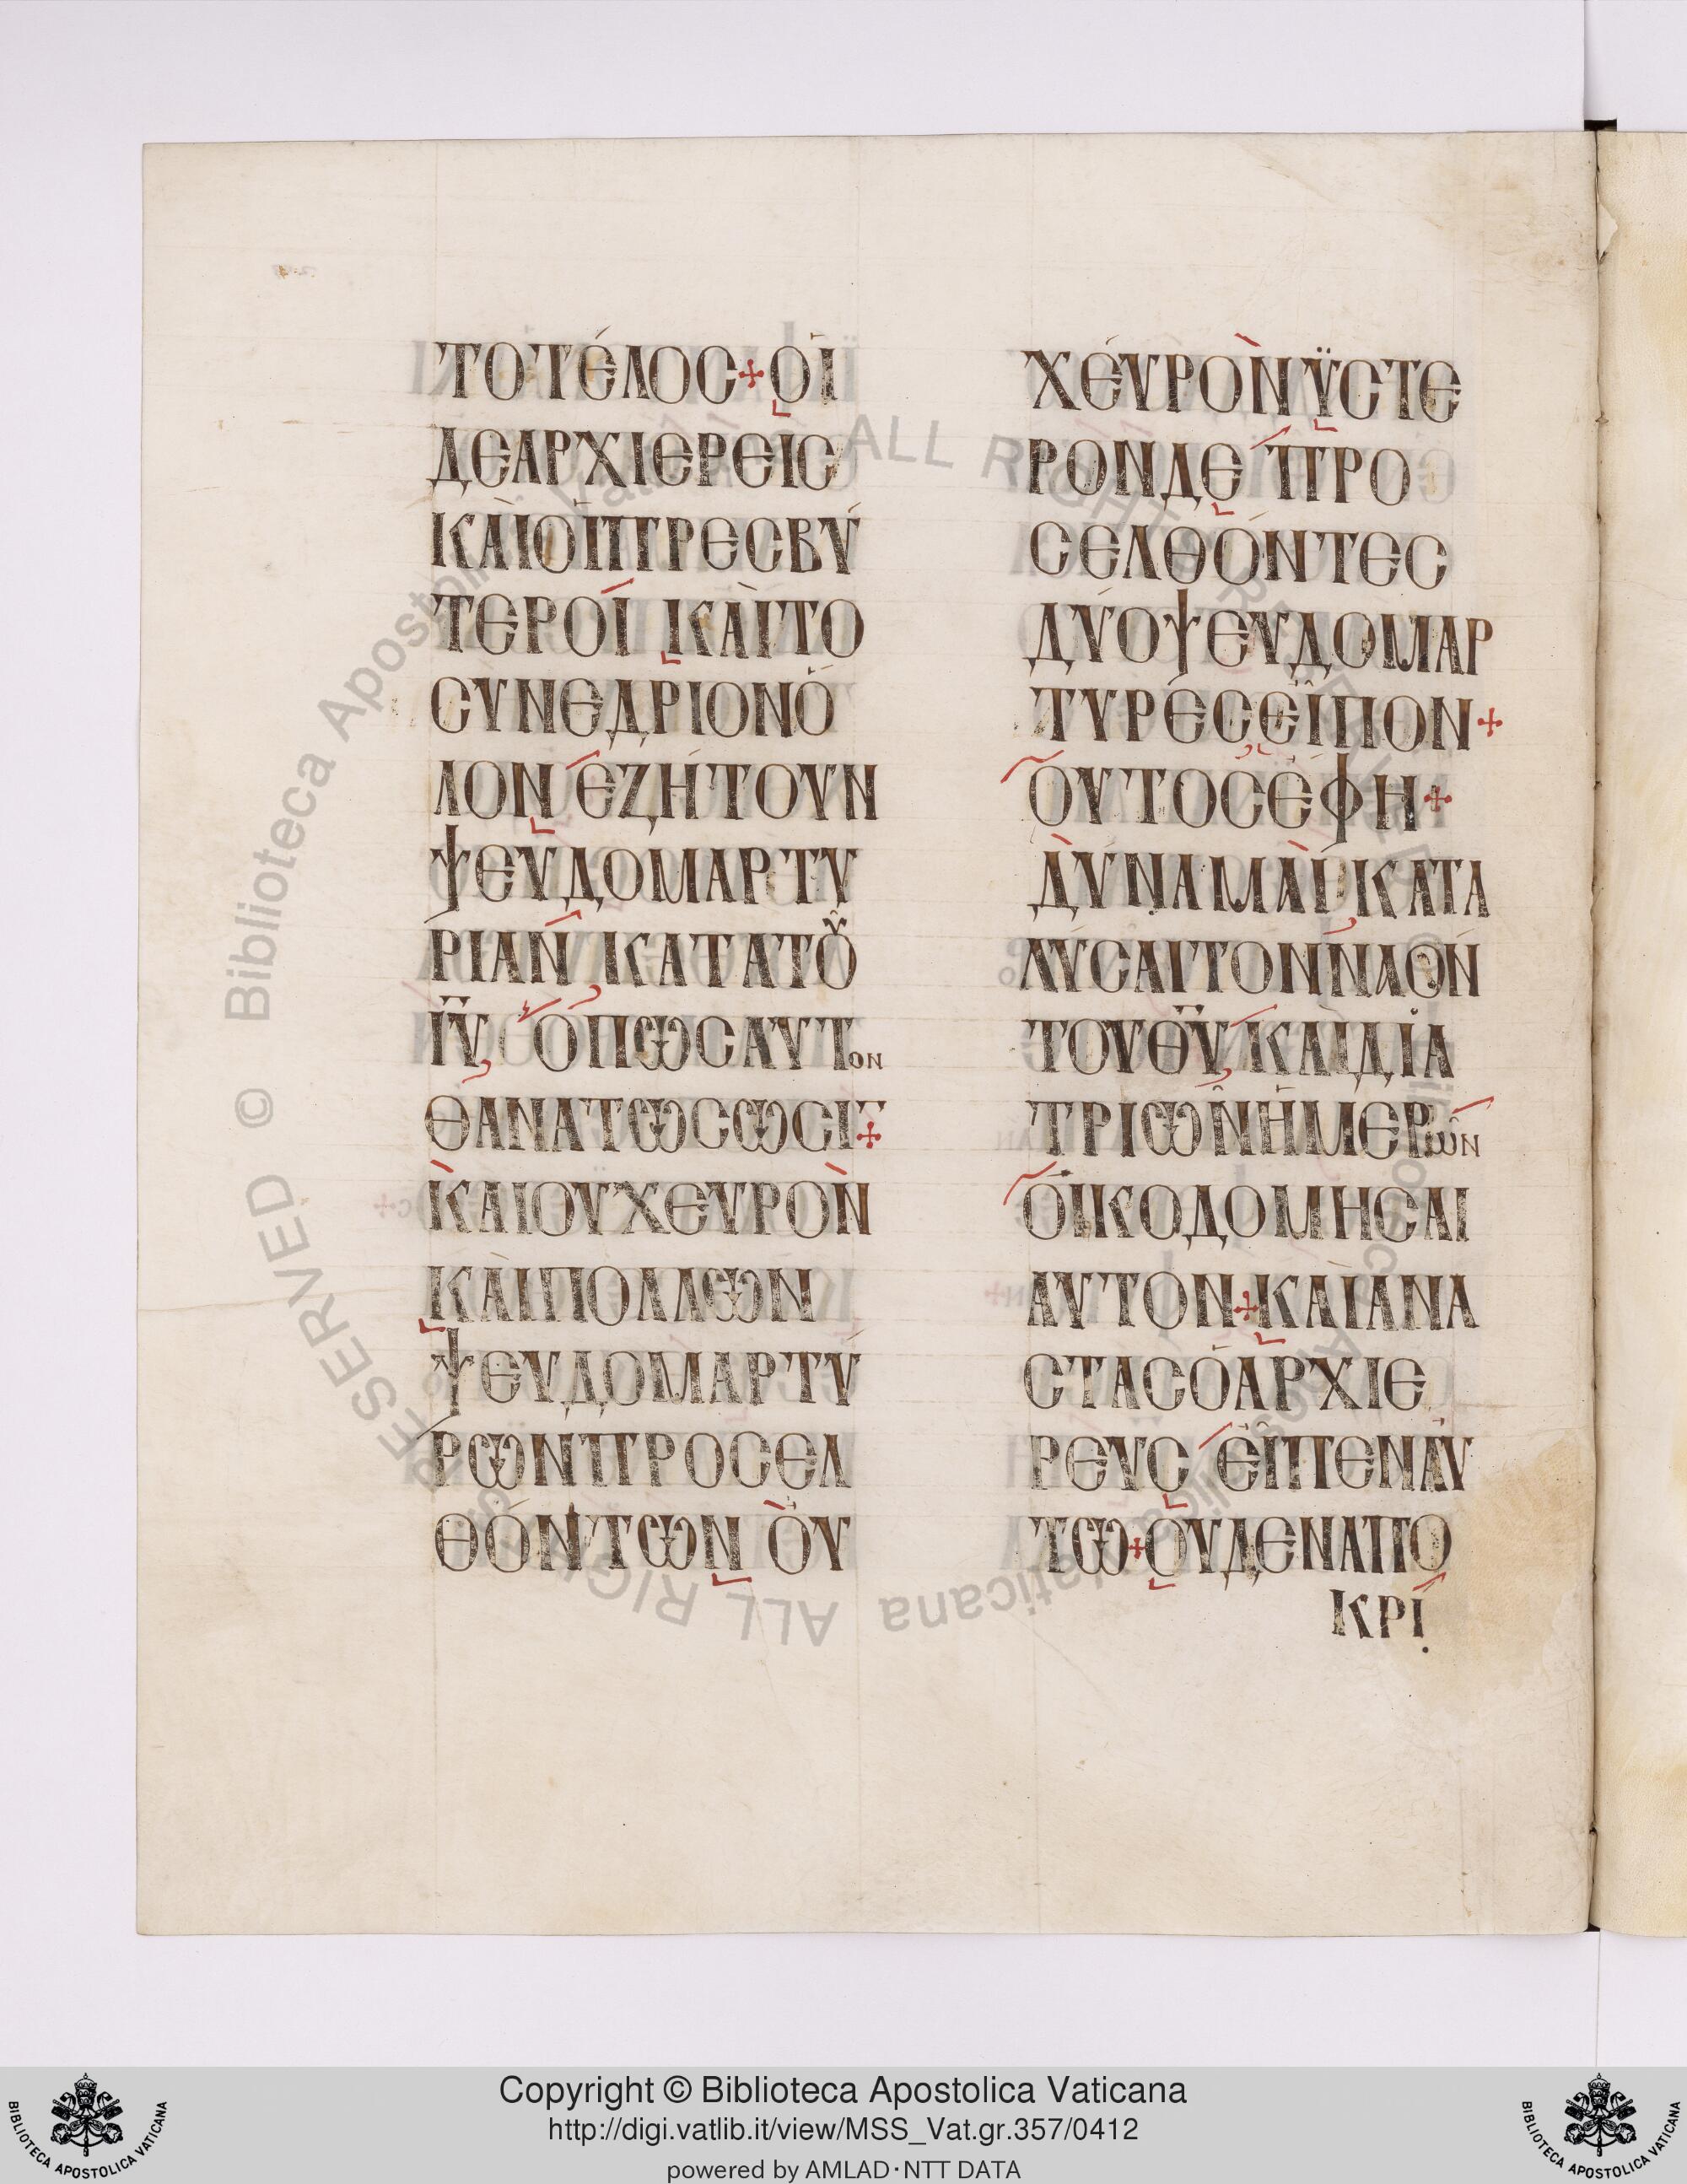 ΤΟ ΤΈΛΟC + ΟἹ
ΔΕ ἈΡΧΙΕΡΕΙC
ΚᾺΙ ΟἹ ΠΡΕCΒΎ
ΤΕΡΟΙ ΚᾺΙ ΤΟ
CΥΝΕΔΡΙΟΝ Ὅ
ΛΟΝ ἘΖΉΤΟΥΝ
ΨΕΥΔΟΜΑΡΤΥ
ΡΊΑΝ ΚΑΤΑ ΤΟῦ
ΙΥ ὍΠΩC ΑΥΤΟΝ
ΘΑΝΑΤΩCΩCΙ +
ΚΑΙ ΟΥΧ ΕΥΡΟΝ
ΚᾺΙ ΠΟΛΛΩΝ
ΨΕΥΔΟΜΑΡΤΎ
ΡΩΝ ΠΡΟCΕΛ
ΘΌΝΤΩΝ ΟΥ
Χ ΕΥΡΟΝ ΫCΤΕ
ΡΟΝ ΔΕ ΠΡΟ
CΕΛΘΌΝΤΕC
ΔΎΟ ΨΕΥΔΟΜΑΡ
ΤΥΡΕC ΕἶΠΟΝ +
ΟΥΤΟC ἜΦΗ +
ΔΥΝΑΜΑΙ ΚΑΤΑ
ΛΥCΑΙ ΤΟΝ ΝΑΟΝ
ΤΟΥ ΘΥ ΚΑΙ ΔΙΑ
ΤΡΙΩΝ ἩΜΕΡΩΝ
ΟἸΚΟΔΟΜΗCΑΙ
ΑΥΤΟΝ + ΚΑΙ ΑΝΑ
CΤΑC Ὁ ΑΡΧΙΕ
ΡΕΥC ΕἶΠΕΝ ΑΥ
ΤΩ + ΟΥΔΕΝ ΑΠΟ
ΚΡΙ
Copyright © Biblioteca Apostolica Vaticana
http://digi.vatlib.it/view/MSS_Vat.gr.357/0412
powered by AMLAD·NTT DATA
BIBLIOTECA APOSTOLICA VATICANA
BIBLIOTECA APOSTOLICA VATICANA